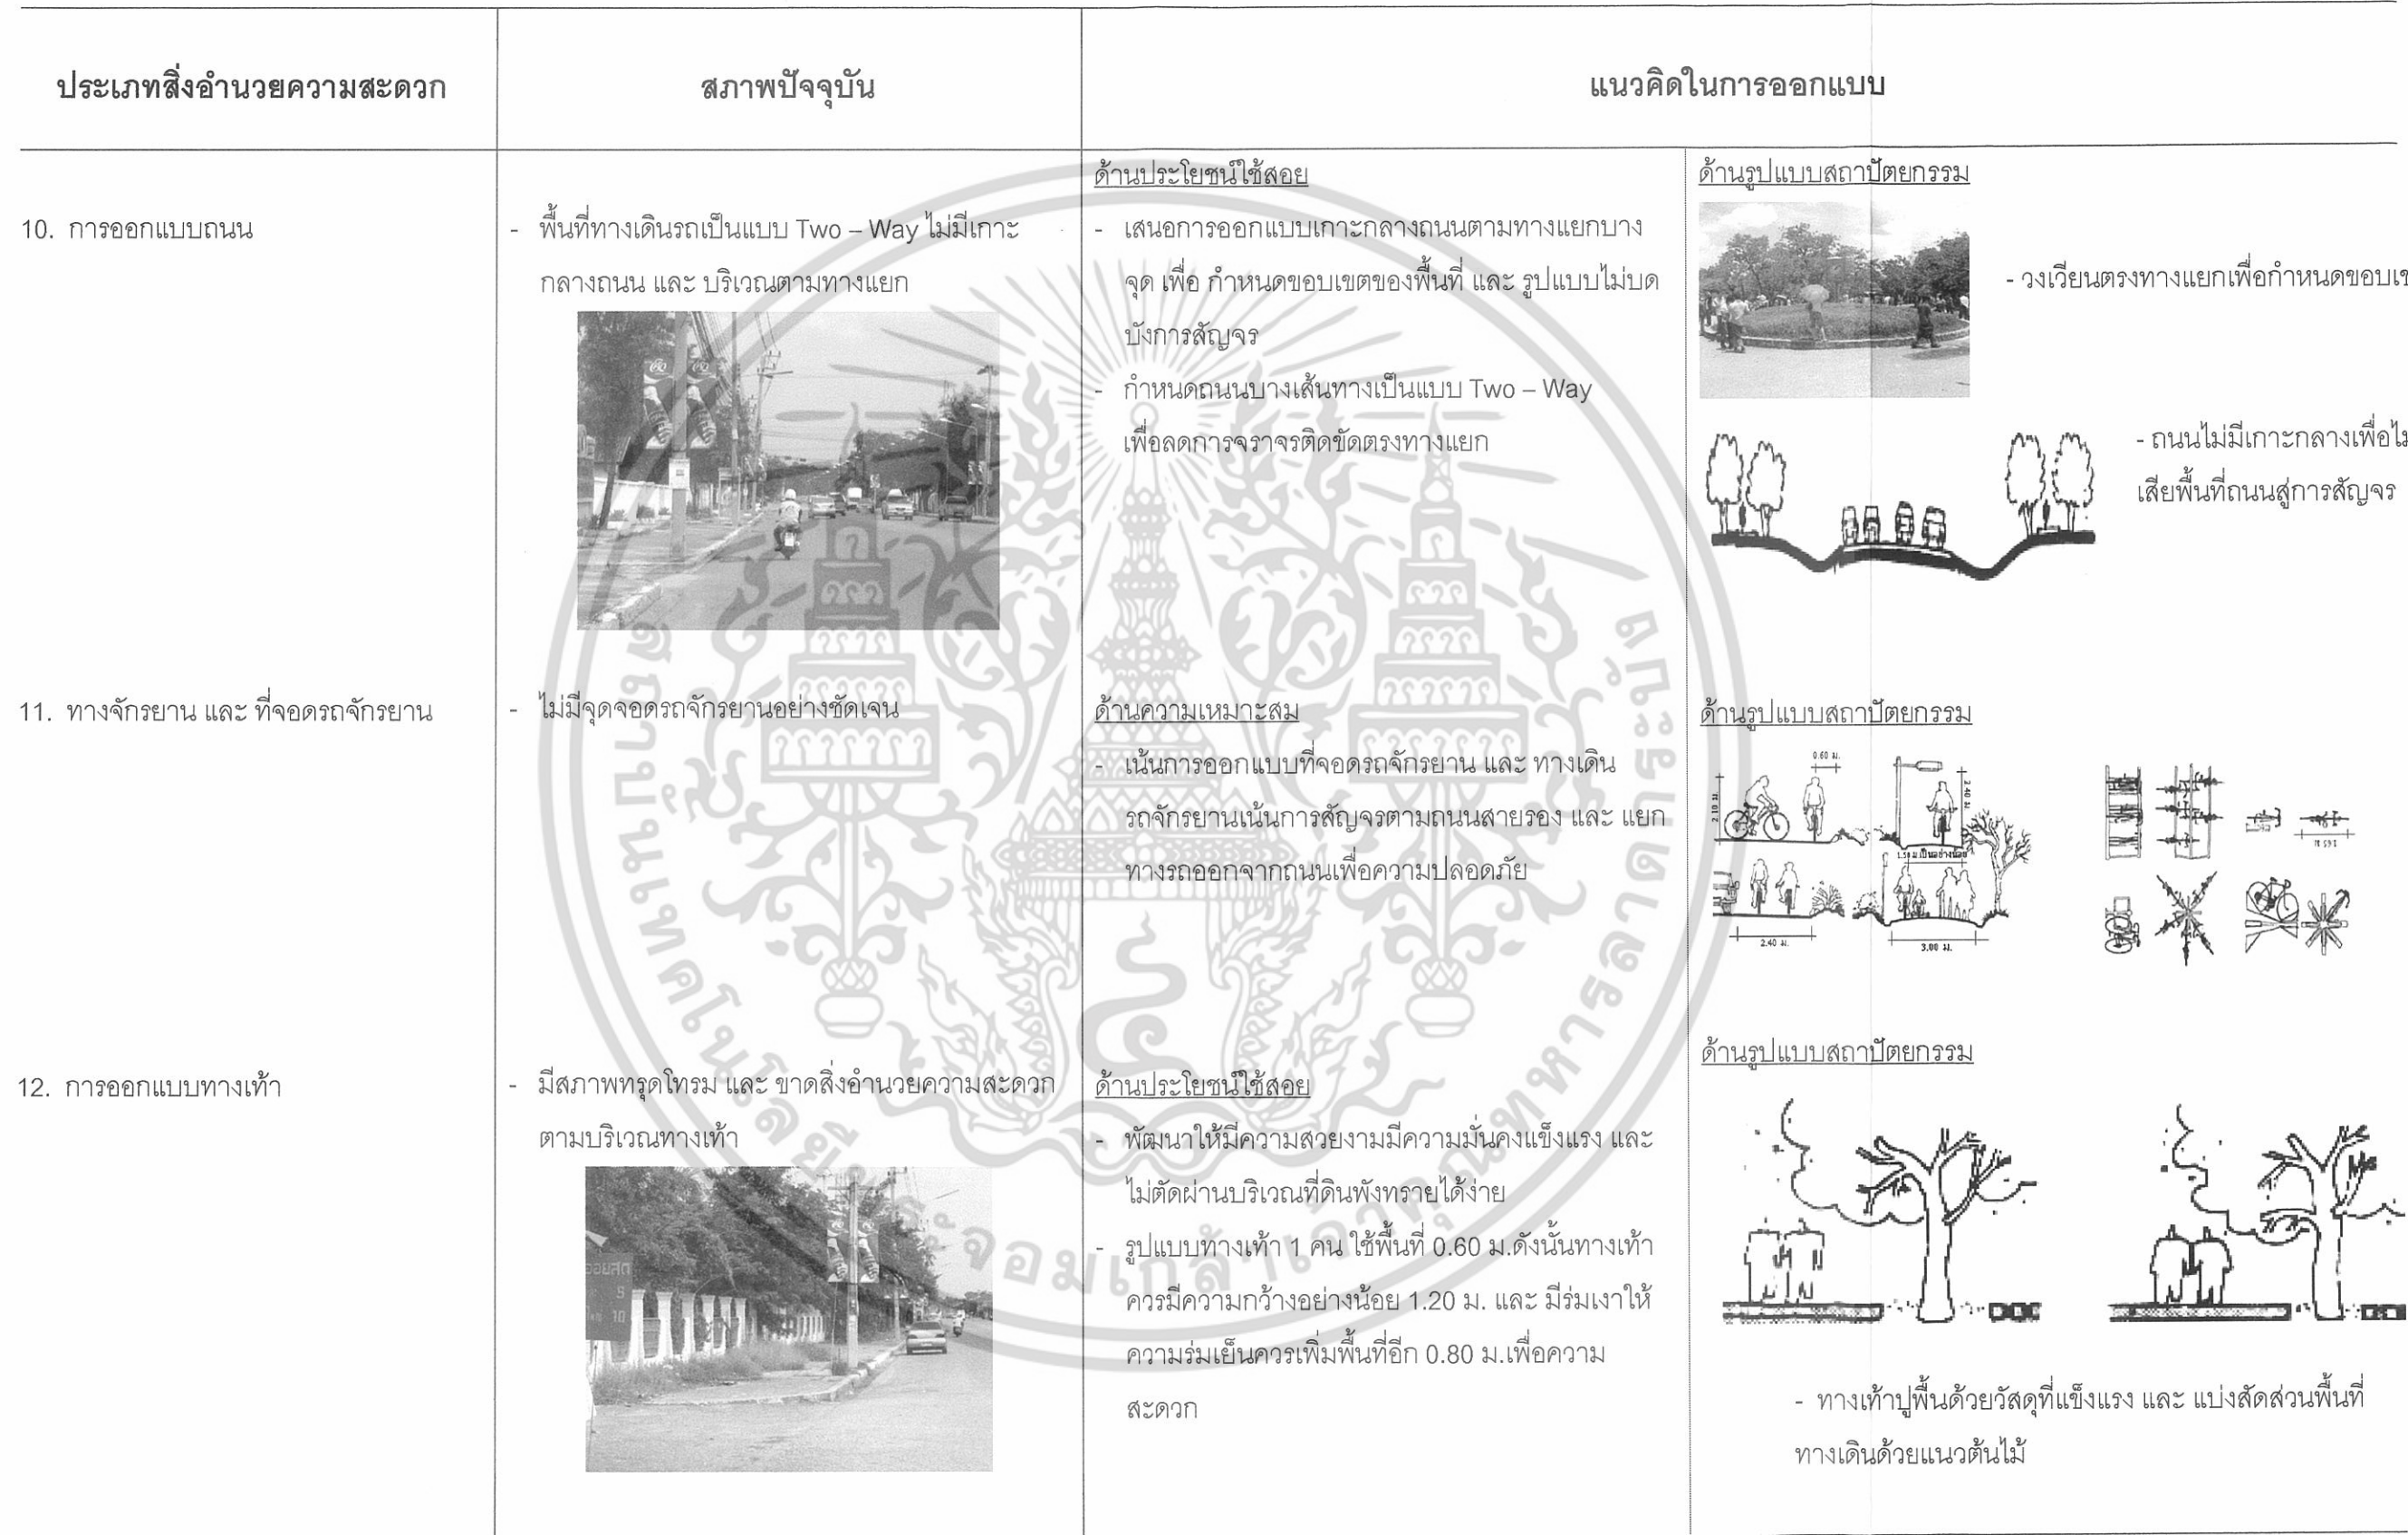 ประเภทสิ่งอำนวยความสะดวก
สภาพปัจจุบัน
แนวคิดในการออกแบบ
10. การออกแบบถนน
- พื้นที่ทางเดินรถเป็นแบบ Two – Way ไม่มีเกาะ
กลางถนน และ บริเวณตามทางแยก
ด้านประโยชน์ใช้สอย
- เสนอการออกแบบเกาะกลางถนนตามทางแยกบาง
จุด เพื่อ กำหนดขอบเขตของพื้นที่ และ รูปแบบไม่บด
บังการสัญจร
- กำหนดถนนบางเส้นทางเป็นแบบ Two – Way
เพื่อลดการจราจรติดขัดตรงทางแยก
ด้านรูปแบบสถาปัตยกรรม
- วงเวียนตรงทางแยกเพื่อกำหนดขอบเข
- ถนนไม่มีเกาะกลางเพื่อไม
เสียพื้นที่ถนนสู่การสัญจร
11. ทางจักรยาน และ ที่จอดรถจักรยาน
- ไม่มีจุดจอดรถจักรยานอย่างชัดเจน
ด้านความเหมาะสม
- เน้นการออกแบบที่จอดรถจักรยาน และ ทางเดิน
รถจักรยานเน้นการสัญจรตามถนนสายรอง และ แยก
ทางรถออกจากถนนเพื่อความปลอดภัย
ด้านรูปแบบสถาปัตยกรรม
0.60 ม.
2.10 ม.
2.40 ม.
1.50 ม.เป็นอย่างน้อย
2.40 ม.
3.00 ม.
12. การออกแบบทางเท้า
- มีสภาพทรุดโทรม และ ขาดสิ่งอำนวยความสะดวก
ตามบริเวณทางเท้า
ด้านประโยชน์ใช้สอย
- พัฒนาให้มีความสวยงามมีความมั่นคงแข็งแรง และ
ไม่ตัดผ่านบริเวณที่ดินพังทรายได้ง่าย
- รูปแบบทางเท้า 1 คน ใช้พื้นที่ 0.60 ม.ดังนั้นทางเท้า
ควรมีความกว้างอย่างน้อย 1.20 ม. และ มีร่มเงาให้
ความร่มเย็นควรเพิ่มพื้นที่อีก 0.80 ม.เพื่อความ
สะดวก
ด้านรูปแบบสถาปัตยกรรม
- ทางเท้าปูพื้นด้วยวัสดุที่แข็งแรง และ แบ่งสัดส่วนพื้นที่
ทางเดินด้วยแนวต้นไม้
สถาบันเทคโนโลยีพระจอมเกล้าเจ้าคุณทหารลาดกระบัง